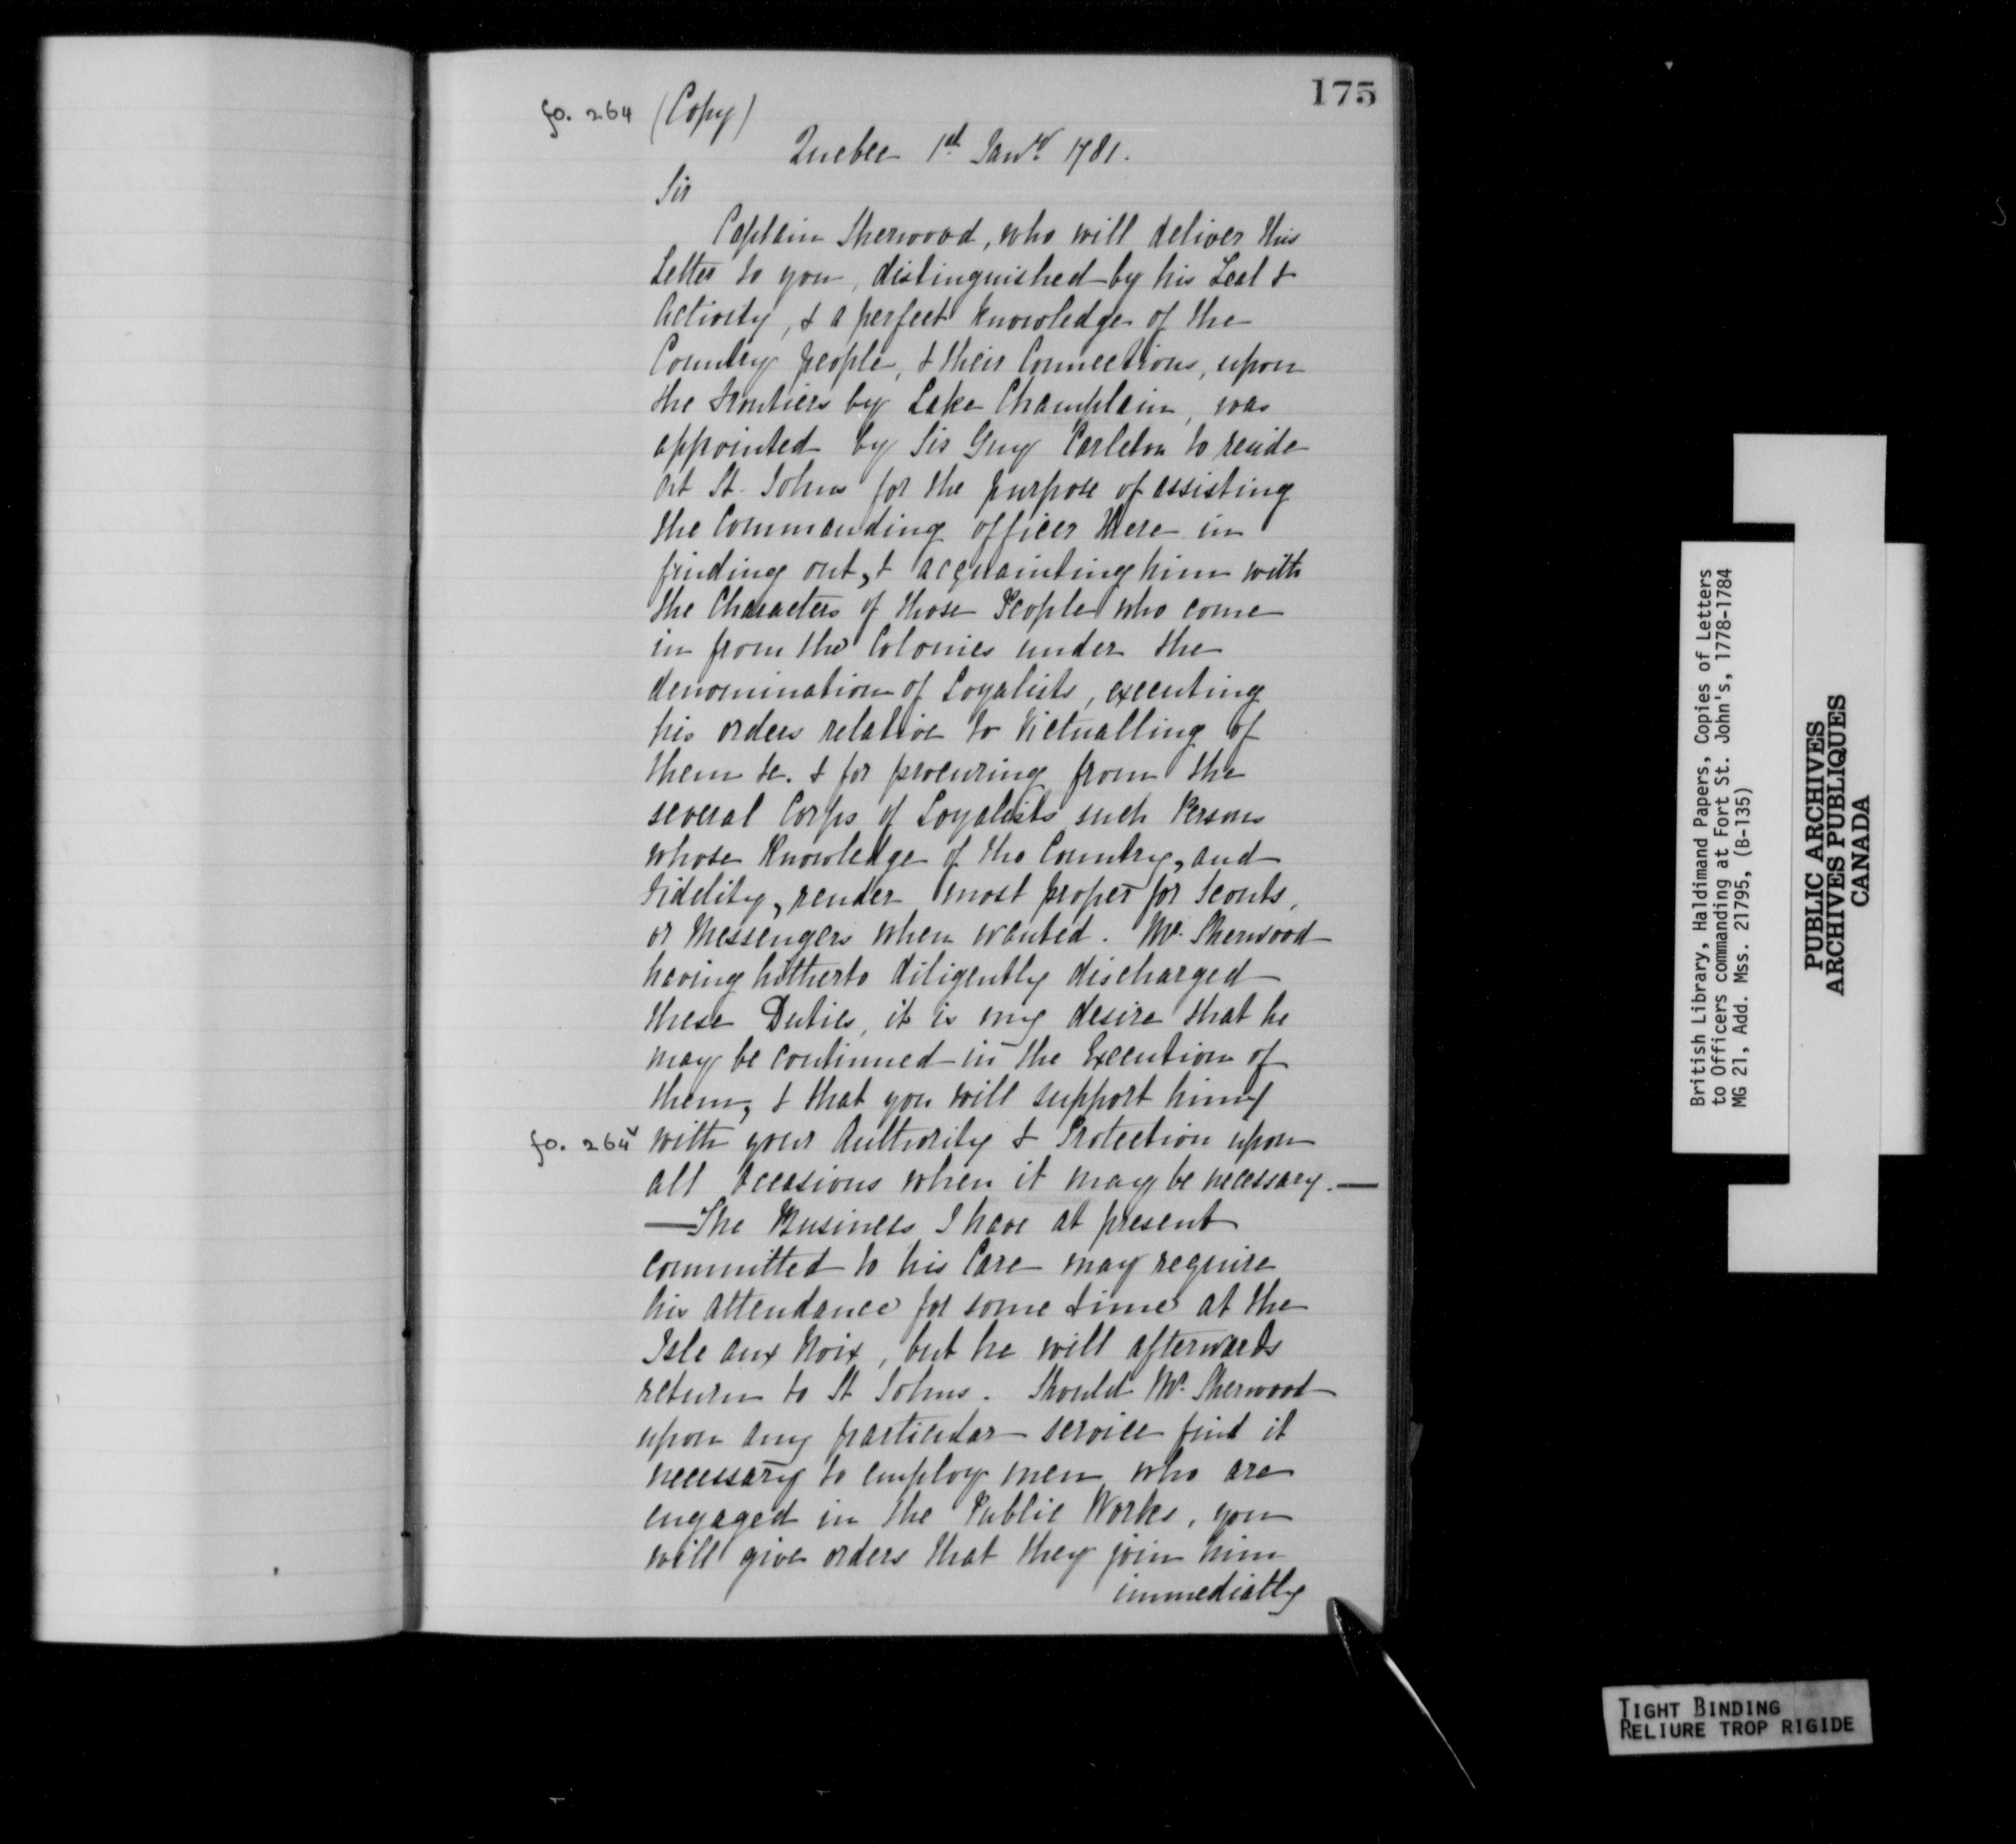 175
fo. 264 (Copy)
Quebec 1st Janry 1781.
Sir
Captain Sherwood, who will deliver this
Letter to you, distinguished by his Zeal &
Activity, & a perfect Knowledge of the
Country people, & their Connections, upon
the frontiers by Lake Champlain, was
appointed by Sir Guy Carleton to reside
at St. Johns for the purpose of assisting
the Commanding officer there in
finding out, & acquainting him with
the Characters of those People who come
in from the Colonies under the
denomination of Loyalists, executing
his orders relative to Victualling of
them &c. & for procuring from the
several Corps of Loyalists such Persons
whose Knowledge of the Country, and
Fidelity, render most proper for Scouts,
or Messengers when wanted. Mr. Sherwood
having hitherto diligently discharged
these Duties, it is my desire that he
may be continued in the Execution of
them, & that you will support him
fo. 264v with your Authority & Protection upon
all occasions when it may be necessary.—
—The Business I have at present
committed to his Care may require
his attendance for some time at the
Isle aux Noix, but he will afterwards
return to St Johns. Should Mr. Sherwood
upon any particular service find it
necessary to employ men who are
engaged in the Public Works, you
will give orders that they join him
immediatly
British Library, Haldimand Papers, Copies of Letters
to Officers commanding at Fort St. John's, 1778-1784
MG 21, Add. Mss. 21795, (B-135)
PUBLIC ARCHIVES
ARCHIVES PUBLIQUES
CANADA
TIGHT BINDING
RELIURE TROP RIGIDE